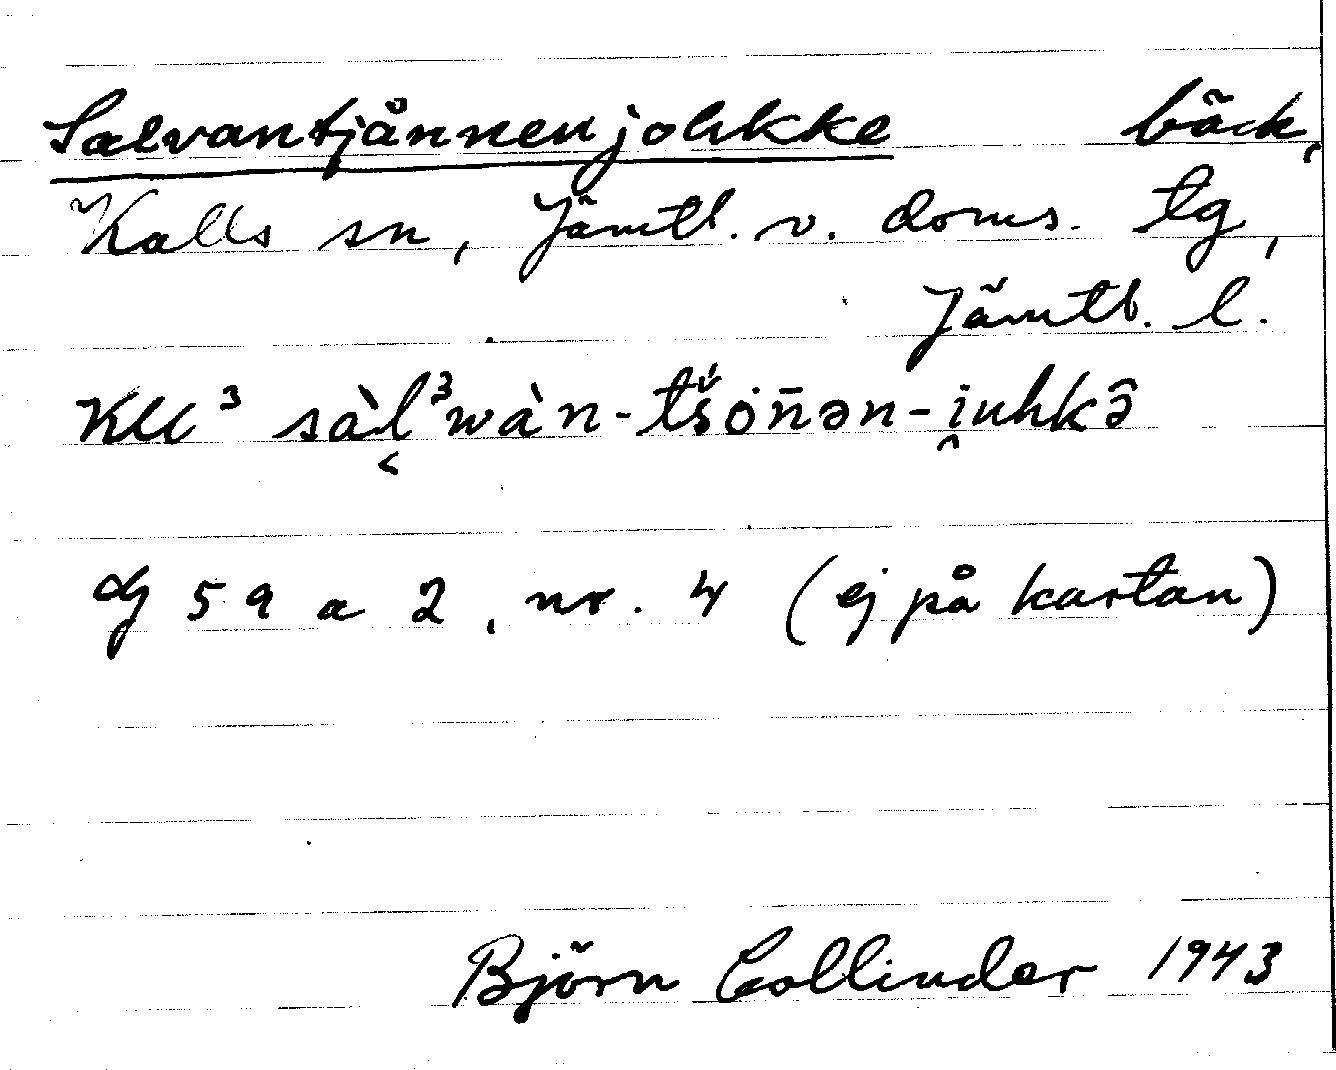 Salvantjånnenjohkke bäck,
Kalls sn, Jämtl. v. doms. tg,
Jämtl. l.
Kll³ sàl̬³wàn-tš́ȯn̄ən-i̭uhkə̂
dg 59 a 2, nr. 4 (ej på kartan)
Björn Collinder 1943